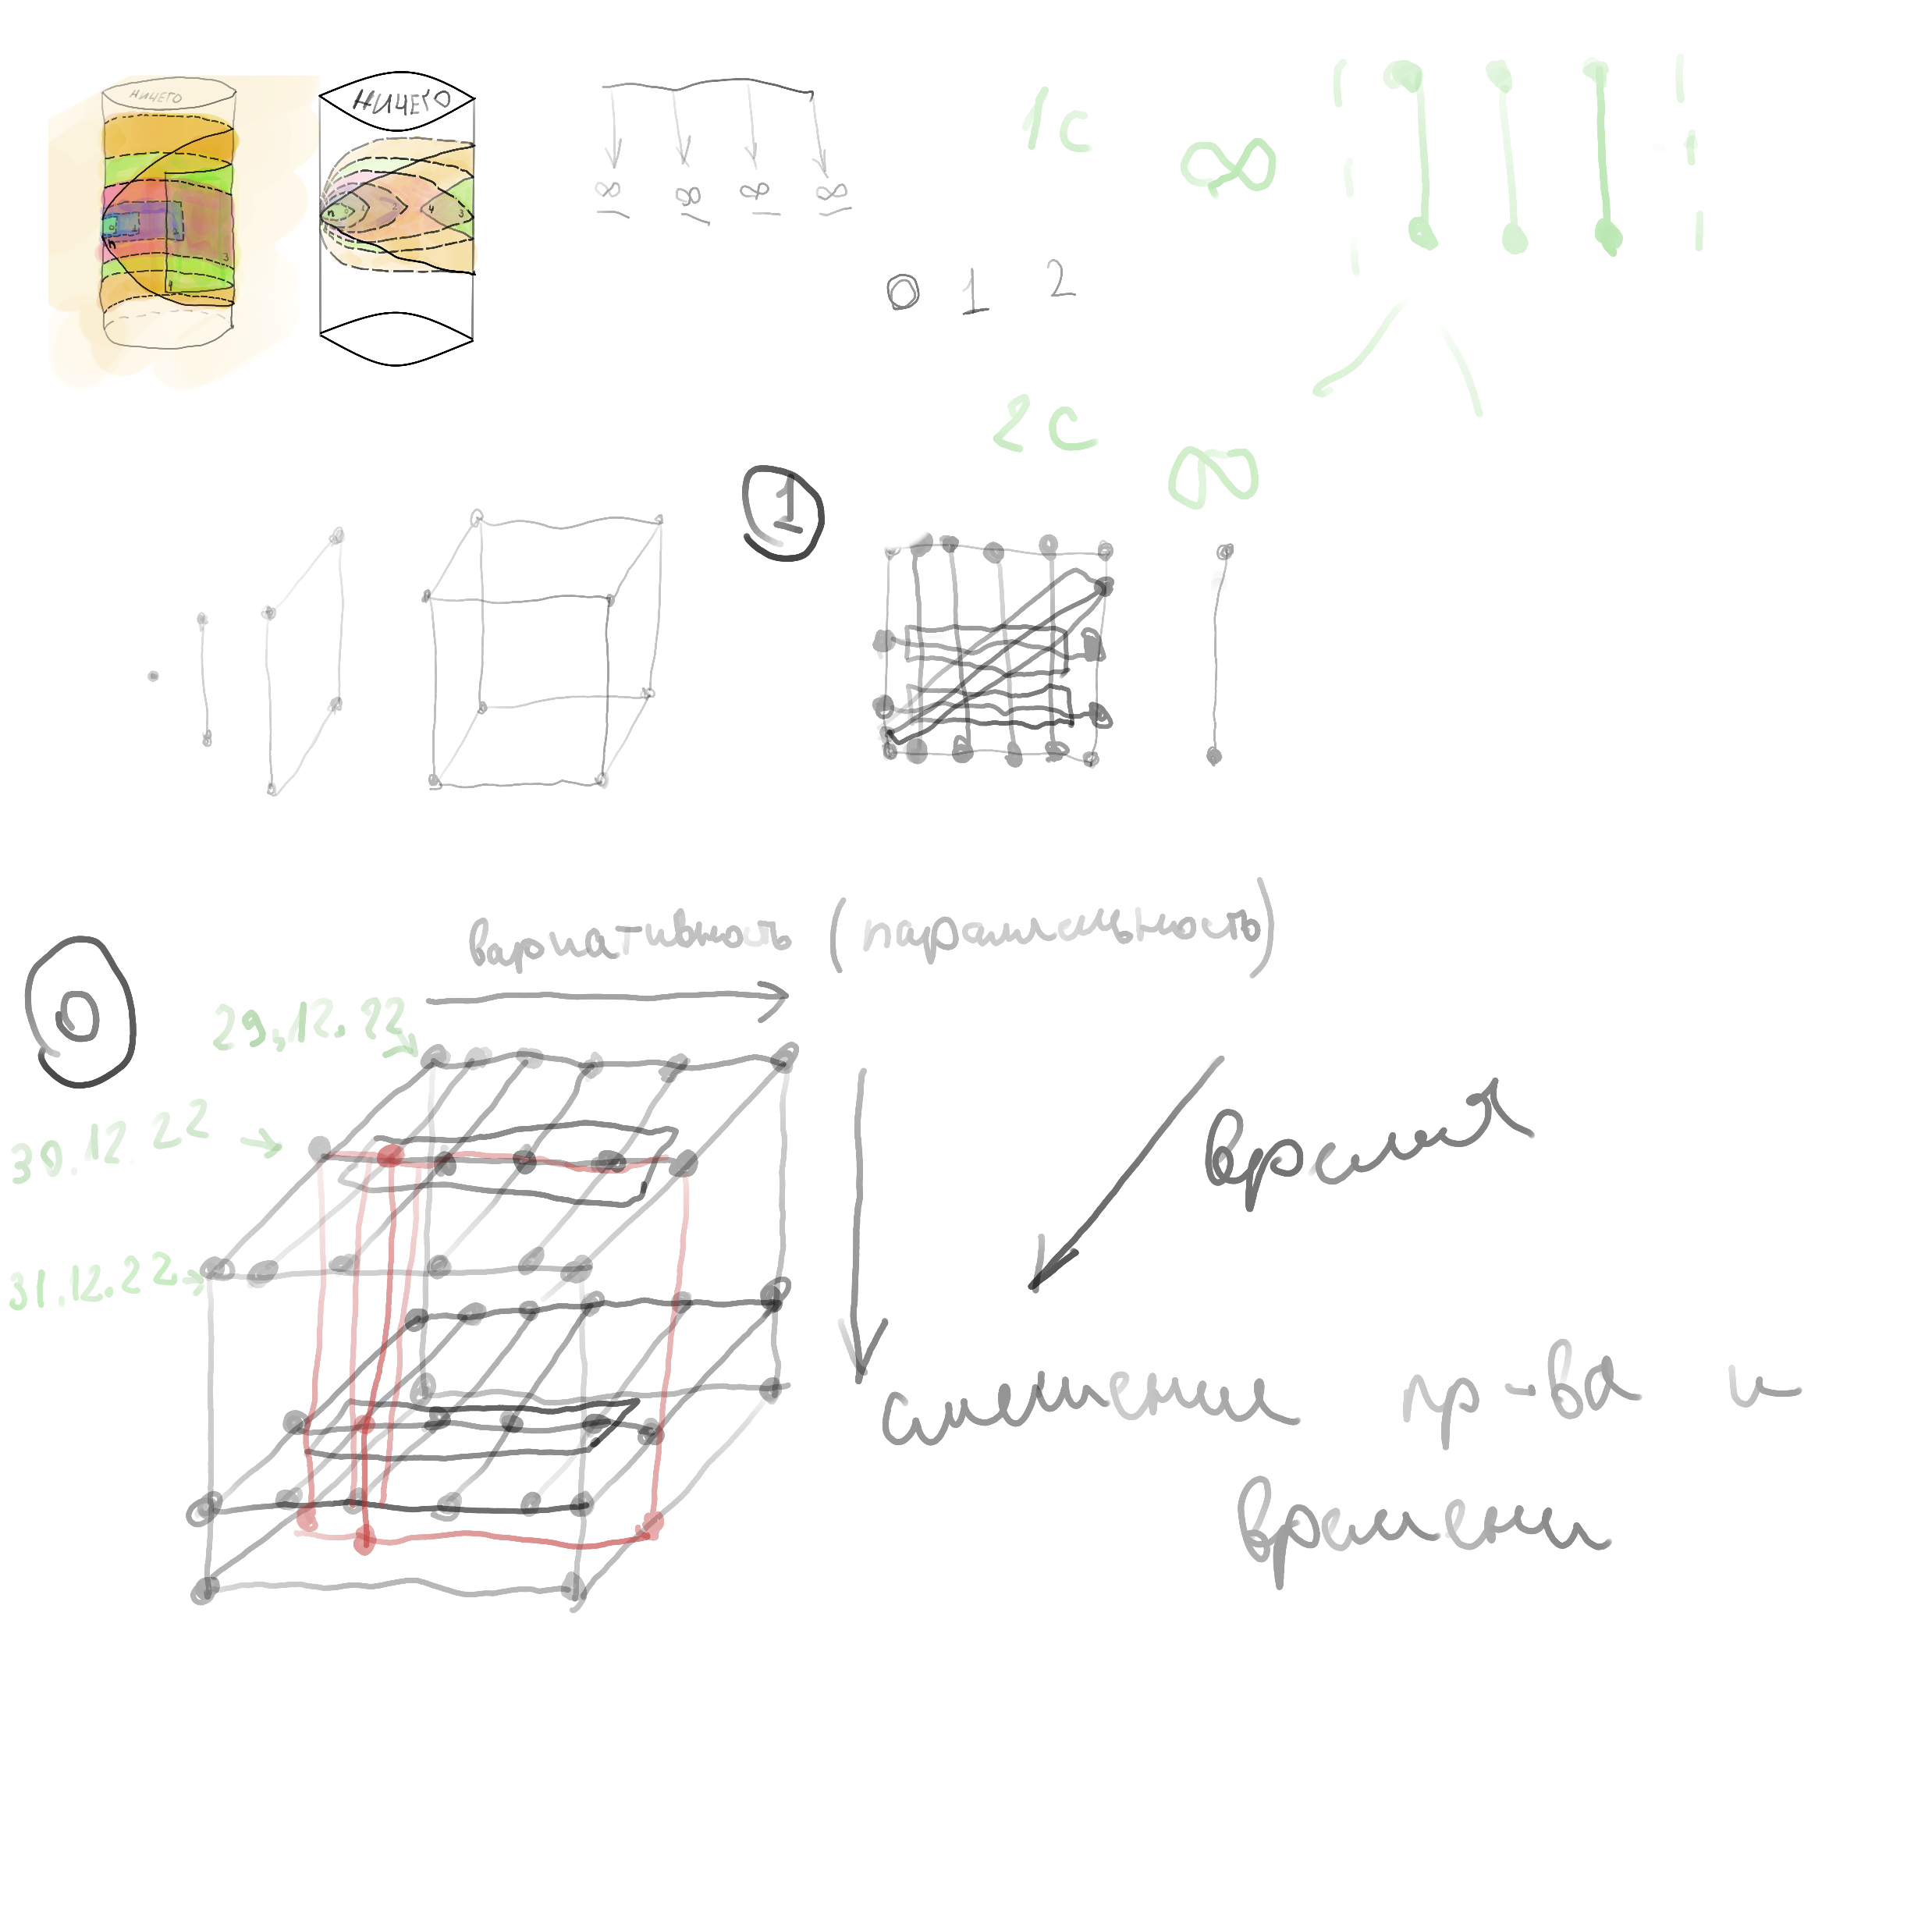 НИЧЕГО
НИЧЕГО
∞ ∞ ∞ ∞
1с
∞
0 1 2
2с
∞
1
вариативность (параллельность)
0
29.12.22
30.12.22
31.12.22
время
смешение пр-ва и
времени